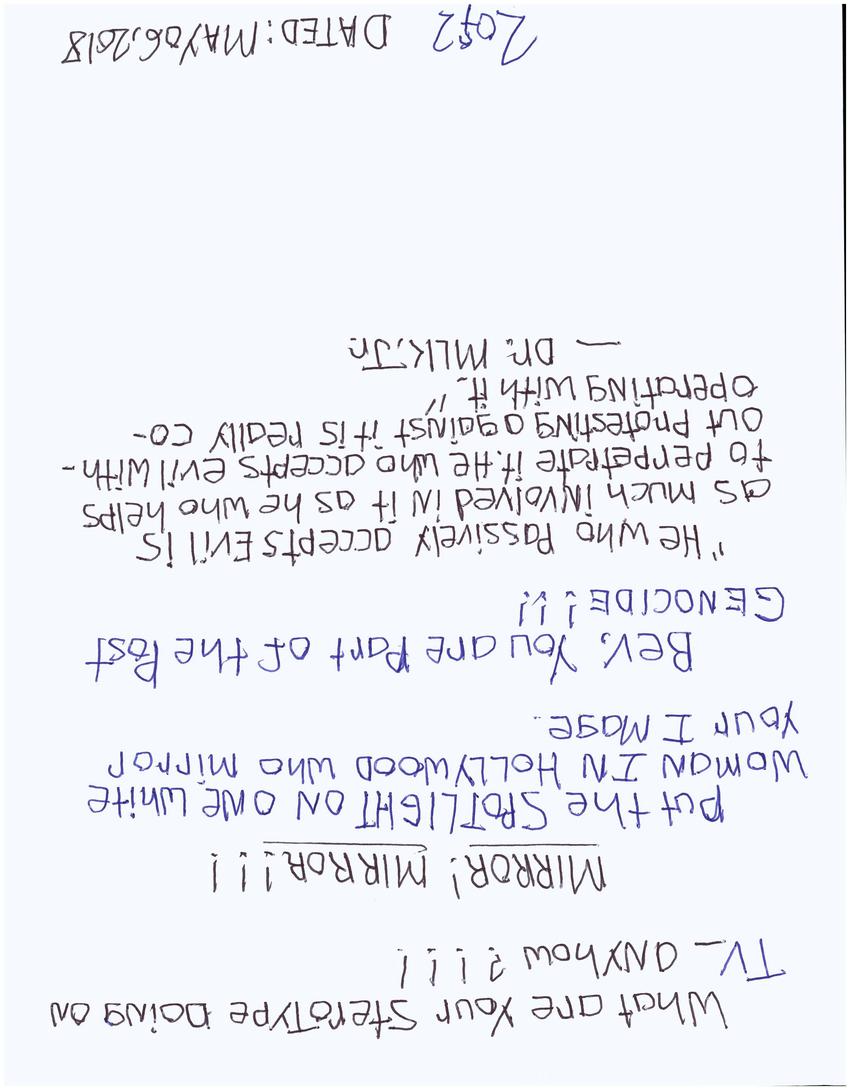 What are Your SteroType Doing on
TV_ anyhow?!!!
MIRROR! MIRROR!!!
Put the SPOTLIGHT ON ONE White
Woman IN HOLLYWOOD who Mirror
Your I Mage.
Bev. You are Part of the Post
GENOCIDE!!!
"He who Passively accepts Evil is
as much iNvolved iN it as he who helps
to perpetrate it. He who accepts evil with-
out Protesting against it is really co-
operatiNg with it."
— Dr. MLK, Jr.
2of2 DATED: MAY 06, 2018